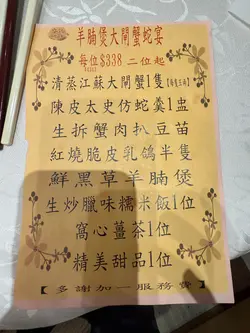 羊腩煲大閘蟹蛇宴
每位$338 二位起
清蒸江蘇大閘蟹1隻
陳皮太史仿蛇羹1盅
生拆蟹肉扒豆苗
紅燒脆皮乳鴿半隻
鮮黑草羊腩煲
生炒臘味糯米飯1位
窩心薑茶1位
精美甜品1位
【多謝加一服務費】